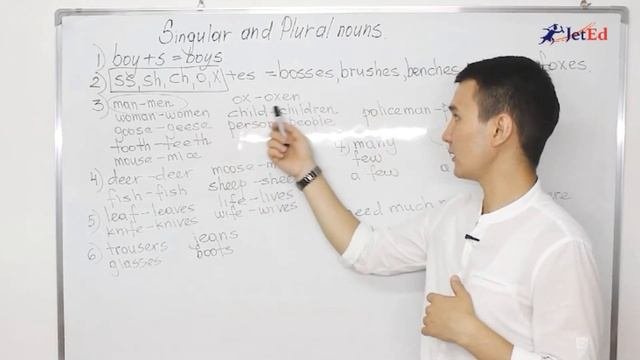 JetEd
Singular and Plural nouns.
1) boy+s = boys
2) ss, sh, ch, o, x +es = bosses, brushes, benches, boxes.
3) man-men ox-oxen
woman-women child-children policeman-
goose-geese person-people
tooth-teeth +) many
mouse-mice few
4) deer-deer moose- a few
fish-fish sheep-sheep
5) leaf-leaves life-lives
knife-knives wife-wives need much
6) trousers jeans
glasses boots